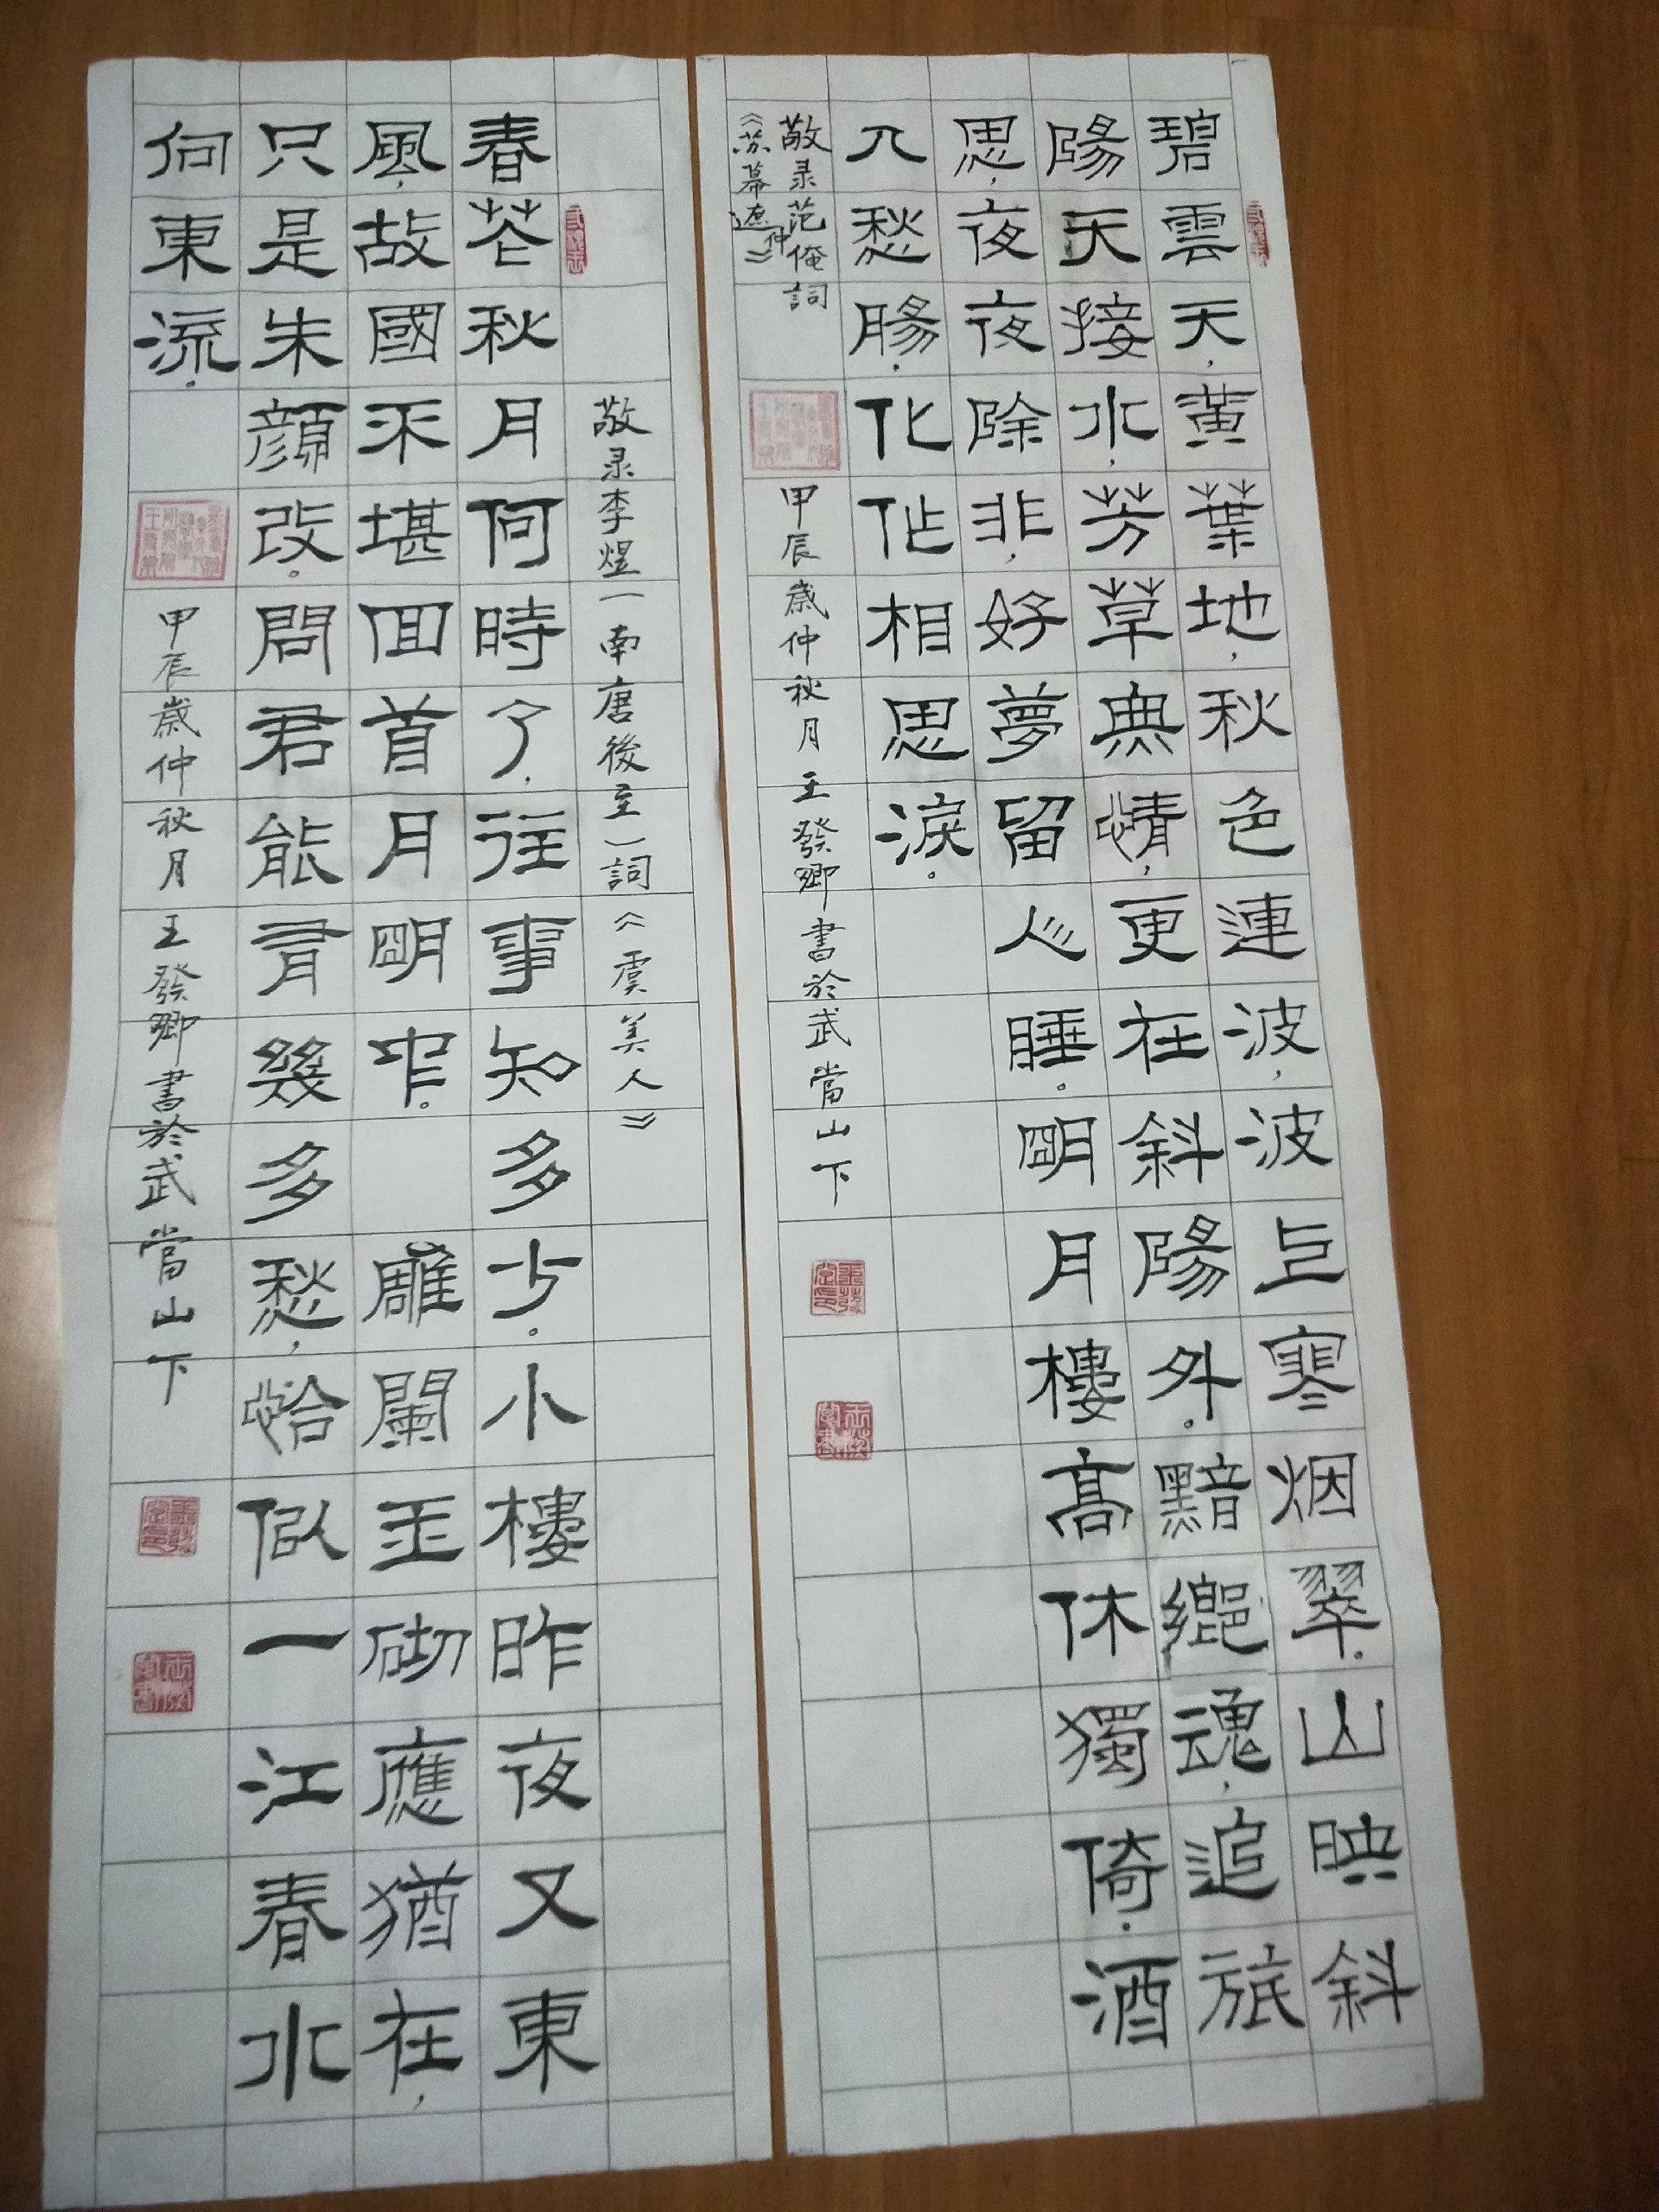 碧雲天,黃葉地,秋色連波,波上寒烟翠。山映斜
陽天接水,芳草無情,更在斜陽外。黯鄉魂,追旅
思,夜夜除非,好夢留人睡。明月樓高休獨倚。酒
入愁腸,化作相思淚。
敬录范仲俺詞
《苏幕遮》
甲辰歲仲秋月王發卿書於武當山下
敬录李煜(南唐後主)詞《虞美人》
春花秋月何時了,往事知多少。小樓昨夜又東
風,故國不堪回首月明中。雕闌玉砌應猶在,
只是朱顏改。問君能有幾多愁,恰似一江春水
向東流。
甲辰歲仲秋月王發卿書於武當山下